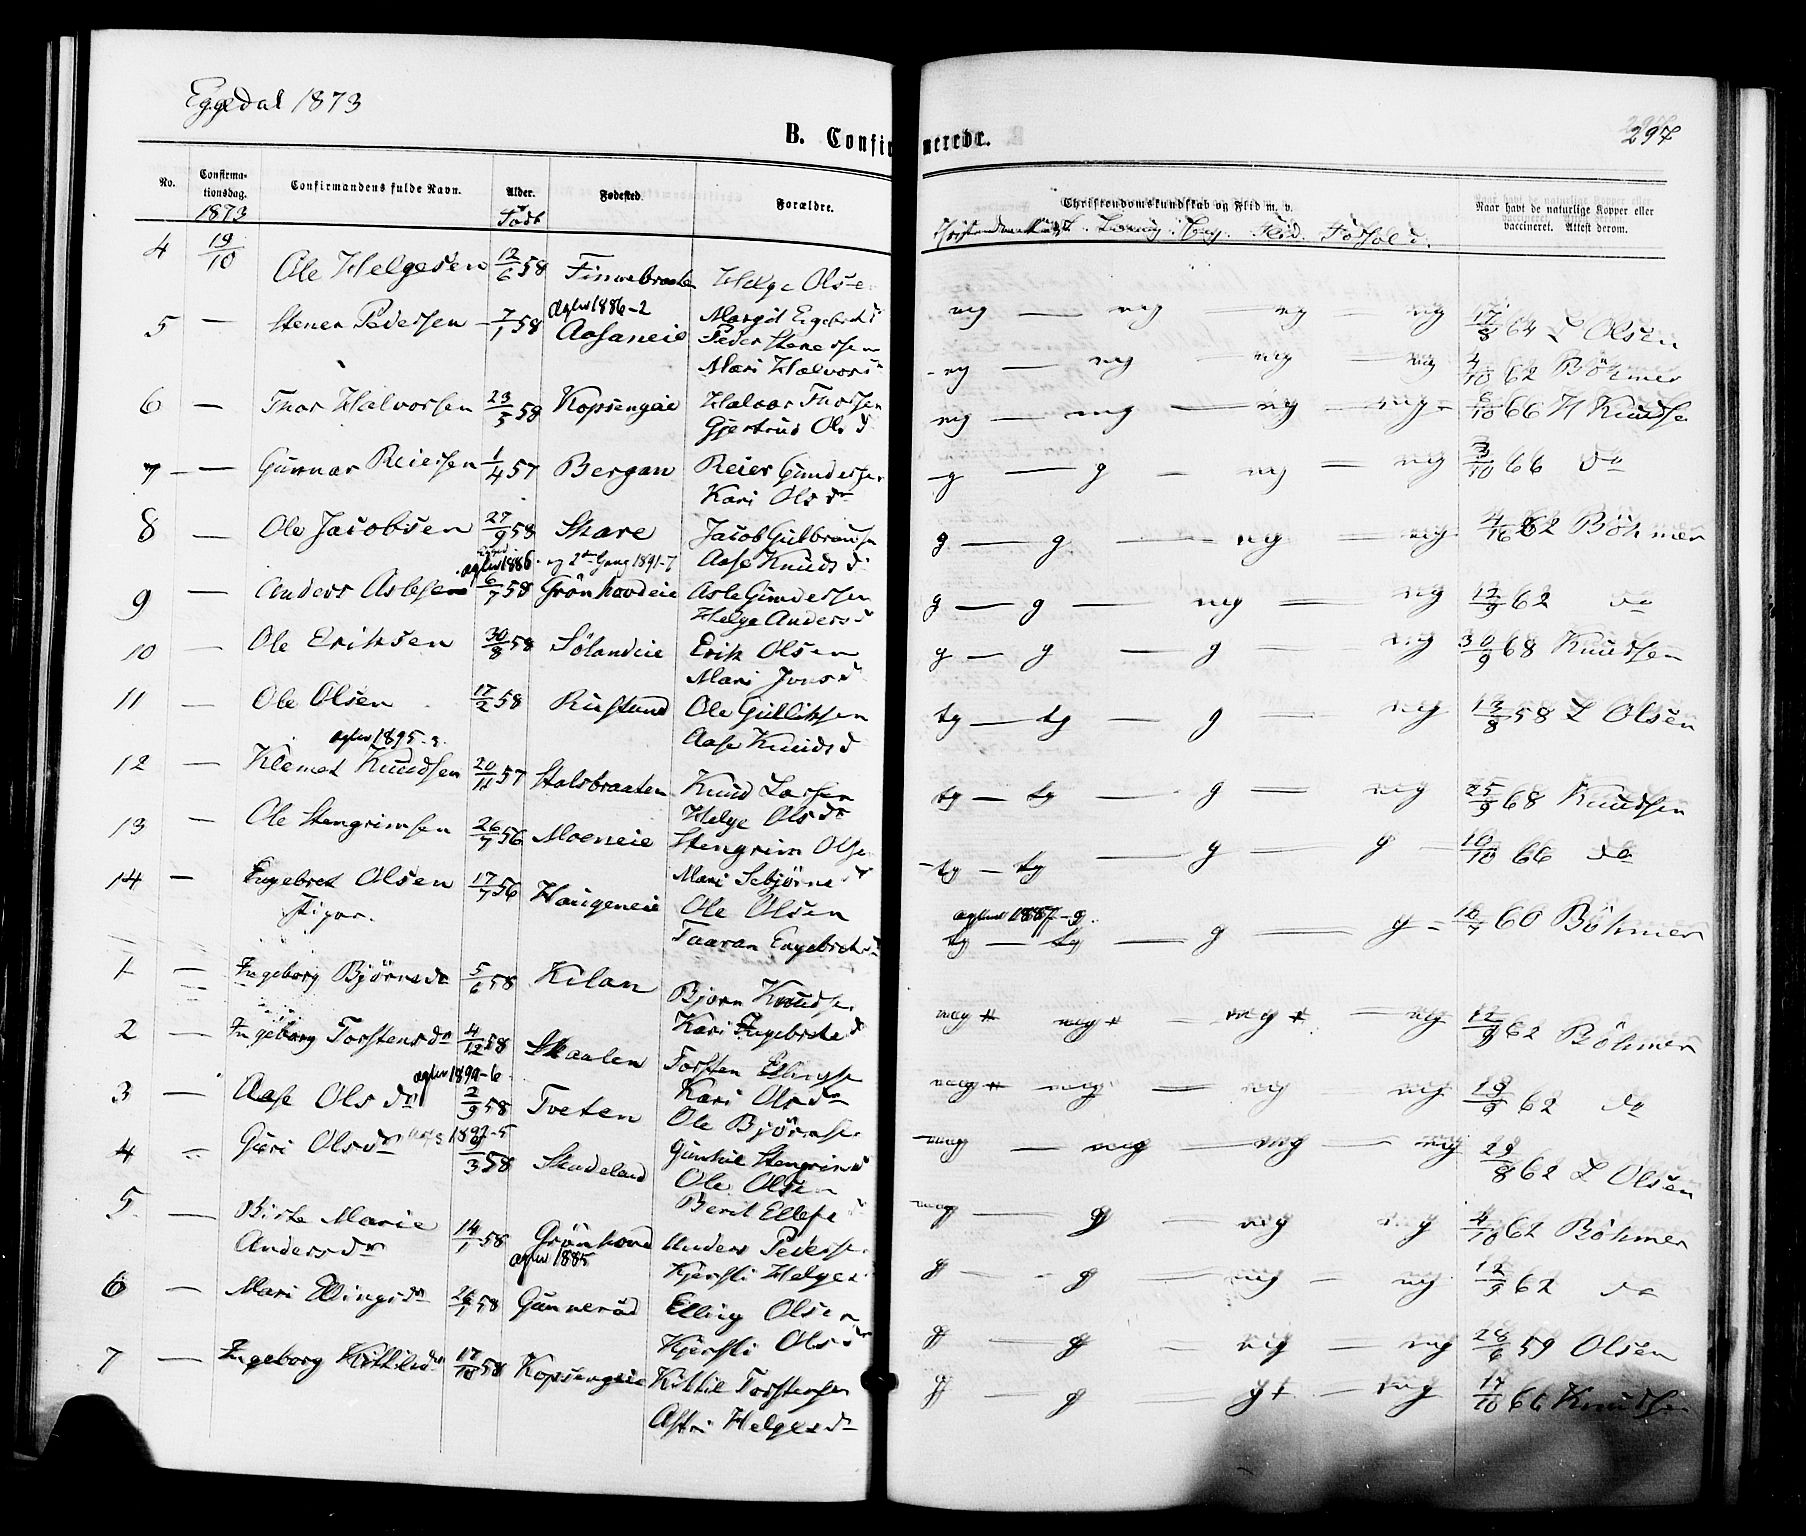 Eggedal 1873
297
B. Confirmerede.
No. Confirma-tionsdag. Confirmandens fulde Navn. Alder. Fødested. Forældre. Christendomskundskab og Flid m. v. Naar havt de naturlige Kopper eller vaccineret. Attest derom.
1873 Født Flid. Forhold.
4 19/10 Ole Helgesen 12/6 58 Finnebraaten Helge Olsen
Margit mg — mg — mg — mg 17/8 64 L Olsen
aglws 1886-2
5 — Stener Pedersen 7/1 58 Aasaneie Peder Stenersen
Mari Halvorsd mg — mg — mg — mg 4/10 62 Böhmer
6 — Thor Halvorsen 23/5 58 Kopsengeie Halvor Thorsen
Gjertrud Olsd mg — mg — mg — mg 66 H Knudse
7 — Gunnar Reiersen 1/4 57 Bergan Reier Gundersen
Kari Olsdr g — g — mg — mg 3/10 66 do
8 — Ole Jacobsen 27/9 58 Skare Jacob Gulbransen
Aase Knudsd g — g — mg — mg 4/10 62 Böhmer
aglws 1886 og 2den Gang 1891-7
9 — Anders Aslesen 6/7 58 Grönhovdeie Asle Gundersen
Helge Andersd g — g — mg — mg 12/9 62 do
10 — Ole Eriksen 30/8 58 Sölandeie Erik Olsen
Mari Jonsd g — g — g — mg 30/9 68 Knudsen
11 — Ole Olsen 17/2 58 Rustand Ole Gulliksen
Aase Knudsd tg — tg — g — mg 13/8 58 L Olsen
aglws 1895-3
12 — Klemet Knudsen 20/11 57 Stolsbraaten Knud Larsen
Helge Olsdr tg — tg — g — mg 25/9 68 Knudsen
13 — Ole Stengrimsen 26/7 56 Moeneie Stengrim Olse
Mari tg — tg — g — g 10/10 66 do
14 — Engebret Olsen 17/7 56 Haugeneie Ole Olsen
Taaran Engebretsd
aglws 1887-9
tg — tg — g — g 16/7 60 Böhmer
1 — Ingeborg Björnsdr 5/6 58 Kilan Bjorn Knudse
Kari Ingebretsd mg mg — mg — mg 12/9 62 Böhmer
2 — Ingeborg Torstensdr 4/12 58 Skaalen Torsten Ellingse
Kari Olsdr mg mg — mg — mg 19/9 62 do
3 — Aase Olsdr 2/9 58 Tveten Ole Björnse
Gunhil Stengrimsd mg — mg — mg — mg 29/8 62 L Olsen
4 Guri Olsdr 3 58 Skadeland Ole Olsen
Berit Ellefsd mg — g — mg mg 4/10 62 Böhmer
5 — Birte Marie Andersdr 14/1 58 Grönhovd Anders Pederse
Kjersti Helges g — g — mg — mg 12/9 62 do
aglws 1885
6 — Mari Ellingsdr 26/1 58 Gunnerud Elling Olsen
Kjersti Olsdr g — g — mg — mg 28/6 59 Olsen
7 — Ingeborg Kittilsdr 17/10 58 Kopsengeie Kittil Torstensen
Astri Helgesdr g — g — g+ — mg 17/10 66 Knudsen